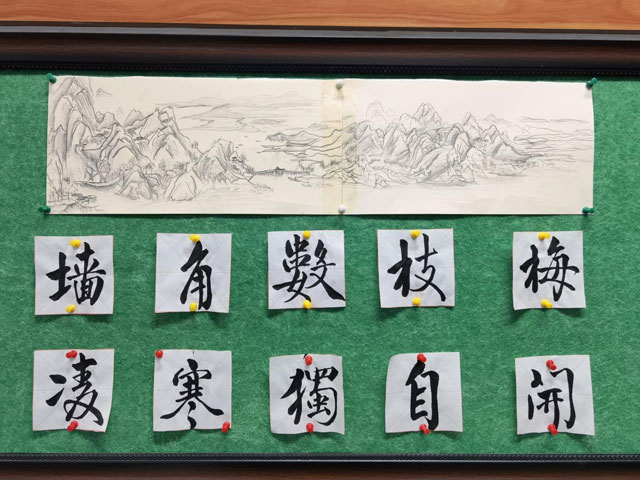 墙角数枝梅
凌寒獨自開